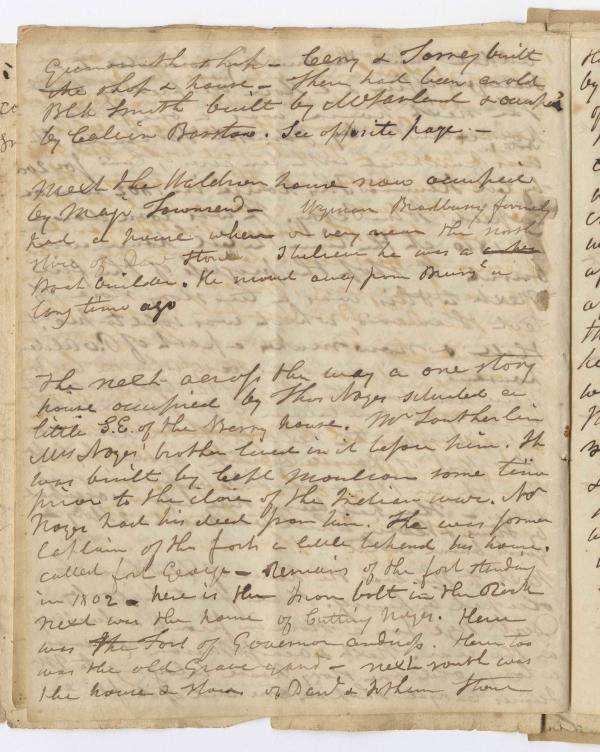 Gunsmith shop - Berry & Torrey built
the shop & house - There had been an old
Blk Smith built by McFarland & occupied
by Calvin Barstow. See opposite page. -
Next the Waldron house now occupied
by Majr Townsend - Wyman Bradbury formerly
had a house where or very near the north
store of Davd Stone I believe he was a
Boat builder. He moved away from Brunsk a
long time ago
The next across the way a one story
house occupied by Thos Noyes situated a
little S.E. of the Berry house. Mr Southerlin
Mrs Noyes' brother lived in it before him. It
was built by Capt Moulson some time
prior to the close of the Indian war. Mr
Noyes had his deed from him. He was former
Captain of the fort a little behind his house.
called fort George - Remains of the fort standing
in 1802 - here is the Iron bolt in the Rock
next was the house of Cutting Noyes. Here
was the Fort of Governor Andross. Here too
was the old Grave yard - next south was
the house & store of Davd & Jotham Stone